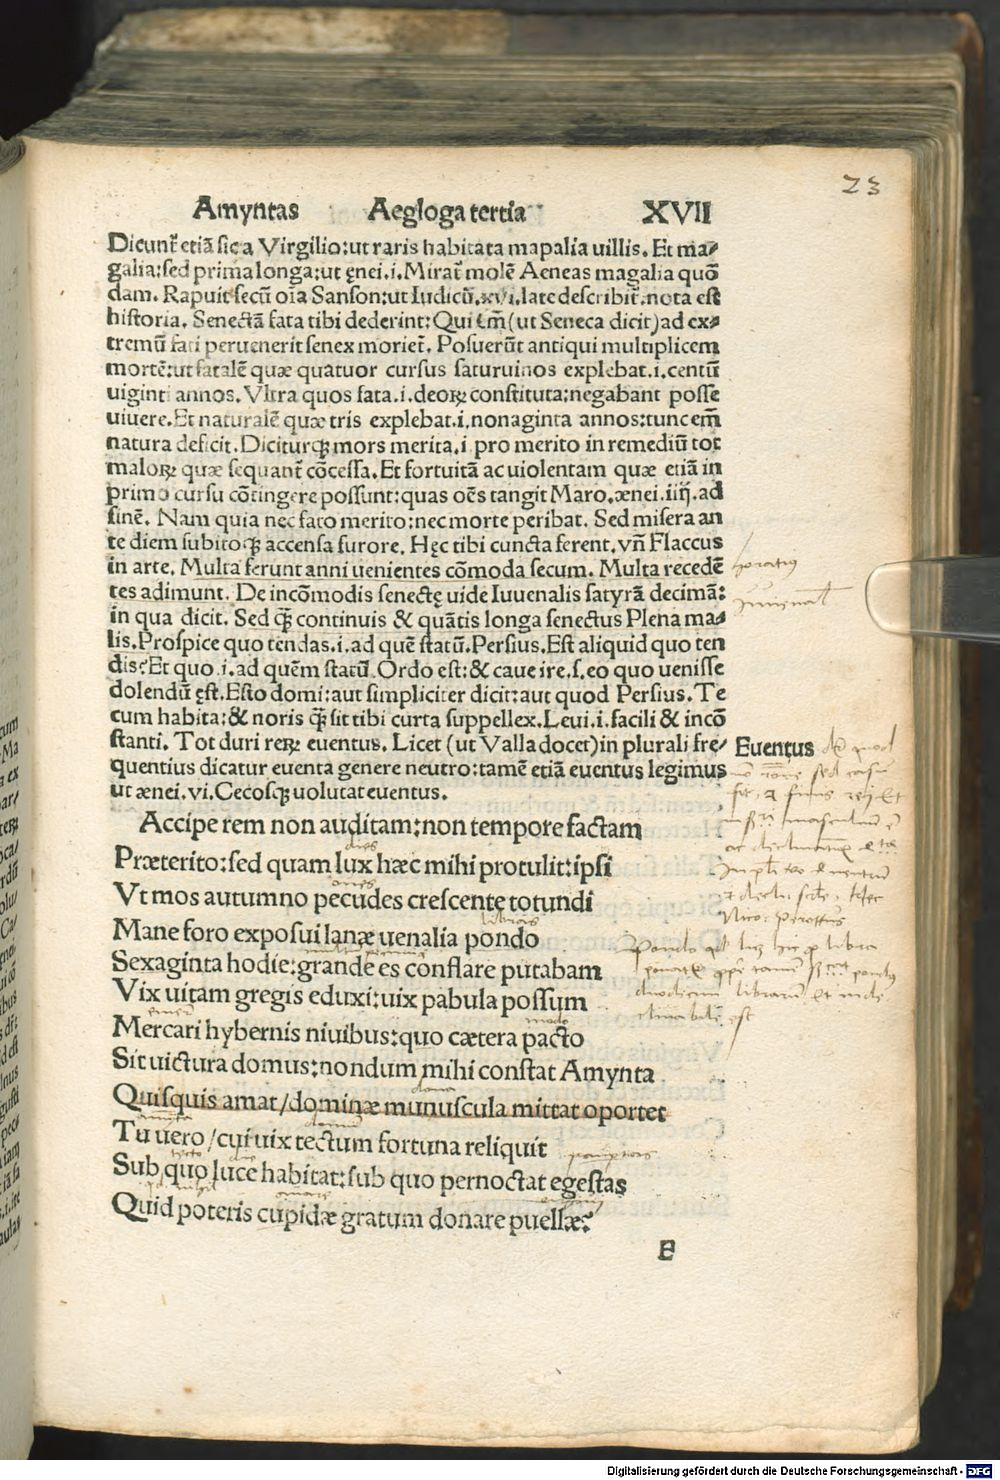 23
Amyntas Aegloga tertia XVII
Dicunt᷑ etiā sic a Virgilio: ut raris habitata mapalia uillis. Et ma⸗
galia: sed prima longa: ut ęnei. i. Mirat᷑ molē Aeneas magalia quō
dam. Rapuit secū oīa Sanson: ut Iudicū. xvi. late describit᷑. nota est
historia. Senectā fata tibi dederint: Qui em̄ (ut Seneca dicit) ad ex⸗
tremū fati peruenerit senex moriet᷑. Posuerūt antiqui multiplicem
mortē: ut fatalē quæ quatuor cursus saturuinos explebat. i. centū
uiginti annos. Vltra quos fata. i. deoꝝ constituta: negabant posse
uiuere. Et naturalē quæ tris explebat. i. nonaginta annos: tunc em̄
natura deficit. Diciturqꝫ mors merita. i pro merito in remediū tot
maloꝝ quæ sequant᷑ cōcessa. Et fortuitā ac uiolentam quæ etiā in
primo cursu cōtingere possunt: quas oēs tangit Maro. ænei. iiij. ad
finē. Nam quia nec fato merito: nec morte peribat. Sed misera an
te diem subitoqꝫ accensa furore. Hęc tibi cuncta ferent. vn̄ Flaccus
in arte. Multa ferunt anni uenientes cōmoda secum. Multa recedē
tes adimunt. De incōmodis senectę uide Iuuenalis satyrā decimā:
in qua dicit. Sed qꝫ̄ continuis & quātis longa senectus Plena ma⸗
lis. Prospice quo tendas. i. ad quē statū. Persius. Est aliquid quo ten
dis? Et quo. i. ad quēm statū. Ordo est: & caue ire. s. eo quo uenisse
dolendū ęst. Esto domi: aut simpliciter dicit: aut quod Persius. Te
cum habita: & noris qꝫ̄ sit tibi curta suppellex. Leui. i. facili & incō
stanti. Tot duri reꝝ euentus. Licet (ut Valla docet) in plurali fre⸗
quentius dicatur euenta genere neutro: tamē etiā euentus legimus
ut ænei. vi. Cecosqꝫ uolutat euentus.
Horatius
Iuuenal
Euentus
Nico: Perottus
Accipe rem non auditam: non tempore factam
dies
Præterito: sed quam lux hæc mihi protulit: ipsi
oues
Vt mos autumno pecudes crescente totundi
librais
Mane foro exposui lanæ uenalia pondo
Sexaginta hodie: grande es conflare putabam
Vix uitam gregis eduxi: uix pabula possum
emere modo
Mercari hybernis niuibus: quo cætera pacto
Sit uictura domus: nondum mihi constat Amynta
dona
Quisquis amat / dominæ munuscula mittat oportet
Tu uero / cui uix tectum fortuna reliquit
Sub quo luce habitat: sub quo pernoctat egestas
Quid poteris cupidæ gratum donare puellæ?
E
Digitalisierung gefördert durch die Deutsche Forschungsgemeinschaft - DFG